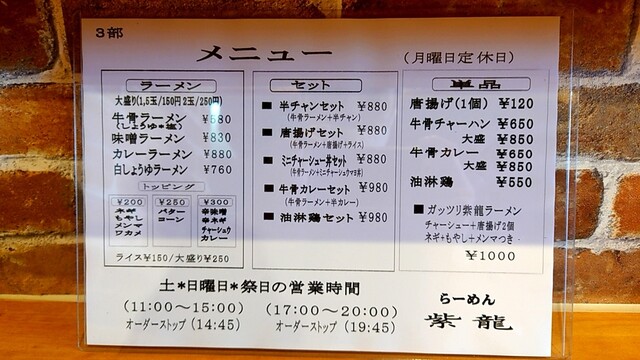 ３部
メニュー
(月曜日定休日)
ラーメン
大盛り(1,5玉/150円 2玉/250円)
牛骨ラーメン ¥580
(しょうゆ*塩)
味噌ラーメン ¥830
カレーラーメン ¥880
白しょうゆラーメン ¥760
トッピング
¥200
ネギ
もやし
メンマ
ワカメ
¥250
バター
コーン
¥300
辛味噌
辛ネギ
チャーシュウ
カレー
ライス¥150/大盛り¥250
セット
■ 半チャンセット ¥880
(牛骨ラーメン+半チャン)
■ 唐揚げセット ¥880
(牛骨ラーメン+唐揚げ+ライス)
■ ミニチャーシュー丼セット ¥880
(牛骨ラーメン+ミニチャーシュウマヨ丼)
■ 牛骨カレーセット ¥980
(牛骨ラーメン+半カレー)
■ 油淋鶏セット ¥980
単品
唐揚げ(1個) ¥120
牛骨チャーハン ¥650
大盛 ¥850
牛骨カレー ¥650
大盛 ¥850
油淋鶏 ¥550
■ ガッツリ紫龍ラーメン
チャーシュー+唐揚げ2個
ネギ+もやし+メンマつき
¥1000
土*日曜日*祭日の営業時間
(11:00～15:00)
オーダーストップ(14:45)
(17:00～20:00)
オーダーストップ(19:45)
らーめん
紫龍